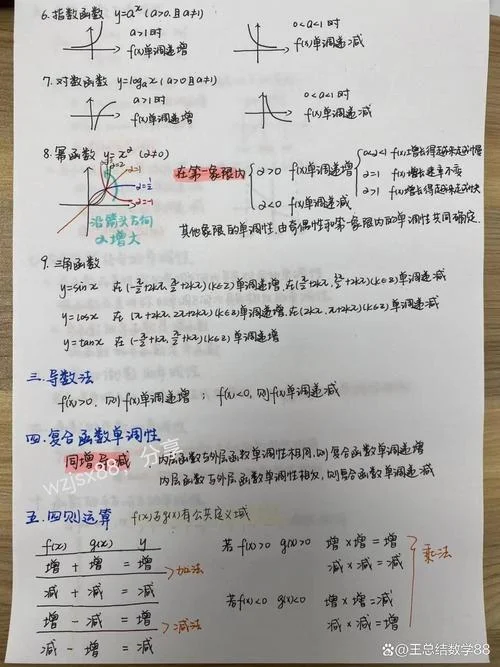 6.指数函数 y=aˣ(a>0且a≠1)
a>1时
f(x)单调递增
0<a<1时
f(x)单调递减
7.对数函数 y=logₐx(a>0且a≠1)
a>1时
f(x)单调递增
0<a<1时
f(x)单调递减
8.幂函数 y=x^α (α≠0)
α=2
α=1
α=1/2
α=-1
沿箭头方向
α增大
在第一象限内
α>0 f(x)单调递增
α<0 f(x)单调递减
0<α<1 f(x)增长得越来越慢
α=1 f(x)增长速率不变
α>1 f(x)增长得越来越快
其他象限的单调性,由奇偶性和第一象限内的单调性共同确定.
9.三角函数
y=sinx 在(-π/2+2kπ, π/2+2kπ)(k∈Z)单调递增,在(π/2+2kπ, 3π/2+2kπ)(k∈Z)单调递减
y=cosx 在(π+2kπ, 2π+2kπ)(k∈Z)单调递增,在(2kπ, π+2kπ)(k∈Z)单调递减
y=tanx 在(-π/2+kπ, π/2+kπ)(k∈Z)单调递增
三.导数法
f'(x)>0, 则f(x)单调递增 ; f'(x)<0, 则f(x)单调递减
四.复合函数单调性
同增异减
内层函数与外层函数单调性相同,则复合函数单调递增
内层函数与外层函数单调性相反,则复合函数单调递减
wzjsx88,分享
五.四则运算 f(x)与g(x)有公共定义域
f(x) g(x) y
增 + 增 = 增
减 + 减 = 减
加法
增 - 减 = 增
减 - 增 = 减
减法
若f(x)>0 g(x)>0 增×增=增
减×减=减
若f(x)<0 g(x)<0 增×增=减
减×减=增
乘法
@王总结数学88